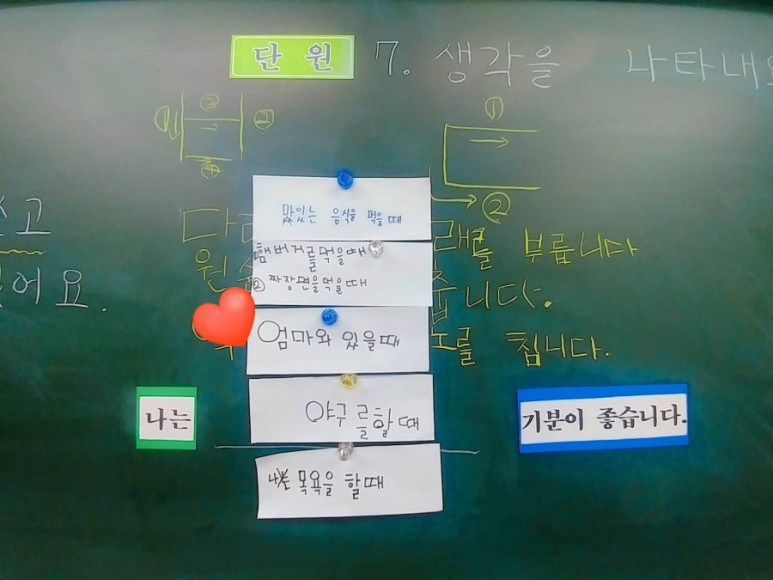 단원 7. 생각을 나타내요
① ③ ②
④
①
②
맛있는 음식을 먹을때
①햄버거를먹을때
②짜장면을먹을때
엄마와 있을때
야구를할때
목욕을 할때
나는
기분이 좋습니다.
고
어요.
부릅니다
칩니다.